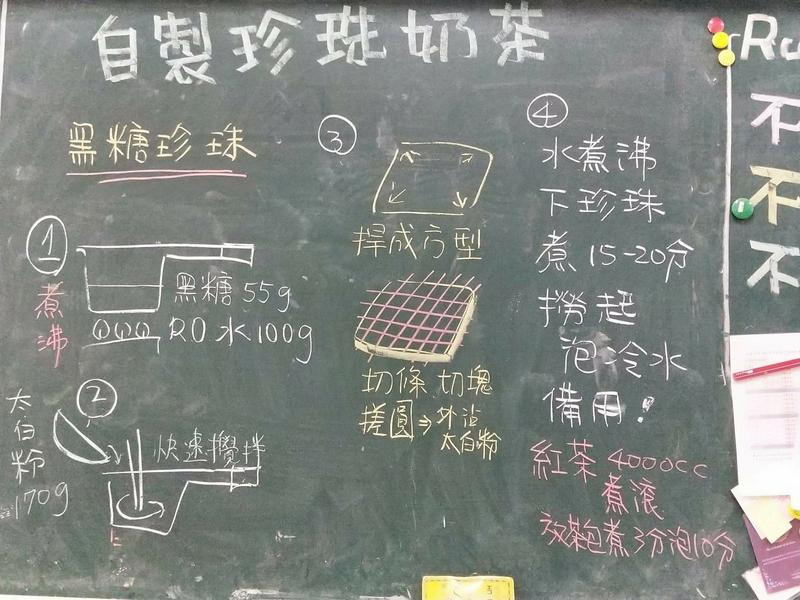 自製珍珠奶茶
黑糖珍珠
①
煮沸
黑糖 55g
RO水100g
②
太白粉
170g
快速攪拌
③
捍成方型
切條 切塊
搓圓⇒外沾太白粉
④
水煮沸
下珍珠
煮15-20分
撈起
泡冷水
備用!
紅茶 4000cc
煮滾
放茶包煮3分泡10分
Ru
不
不
不